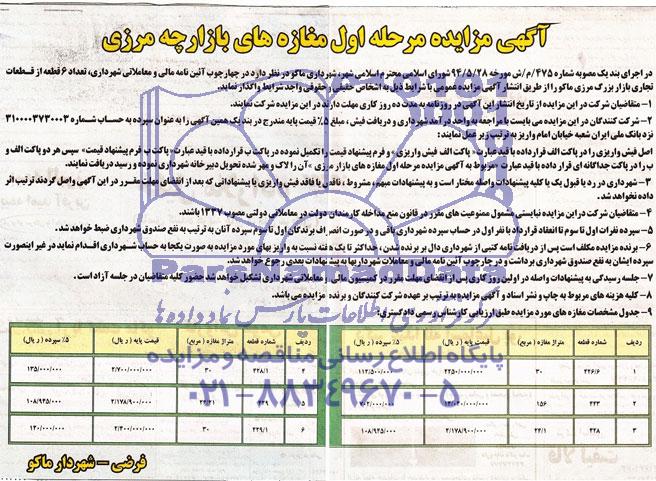 آگهی مزایده مرحله اول مغازه های بازارچه مرزی
در اجرای بند یک مصوبه شماره ۴۷۵/م/ش مورخه ۹۴/۵/۲۸ شورای اسلامی محترم اسلامی شهر، شهرداری ماکو در نظر دارد در چهارچوب آئین نامه مالی و معاملاتی شهرداری، تعداد ۶ قطعه از قطعات
تجاری بازار بزرگ مرزی ماکو را از طریق انتشار آگهی مزایده عمومی با شرایط ذیل به اشخاص حقیقی و حقوقی واجد شرایط واگذار نماید.
۱- متقاضیان شرکت در این مزایده از تاریخ انتشار این آگهی در روزنامه به مدت ده روز کاری مهلت دارند در این مزایده شرکت نمایند.
۲- شرکت کنندگان در این مزایده می بایست با مراجعه به واحد درآمد شهرداری و دریافت فیش، مبلغ ۵٪ قیمت پایه مندرج در بند یک همین آگهی را به عنوان سپرده به حساب شماره ۳۱۰۰۰۰۳۷۳۰۰۰۳
نزد بانک ملی ایران شعبه خیابان امام واریز به ترتیب زیر عمل نمایند:
اصل فیش واریزی را در پاکت الف قرارداده با قید عبارت «پاکت الف فیش واریزی» و فرم پیشنهاد قیمت را تکمیل نموده در پاکت ب قرارداده با قید عبارت «پاکت ب فرم پیشنهاد قیمت» سپس هر دو پاکت الف و
ب را در پاکت جداگانه ای قرار داده با قید عبارت «مربوط به آگهی مزایده مرحله اول مغازه های بازار مرزی» آن را لاک و مهر شده تحویل دبیرخانه شهرداری نموده و رسید دریافت نمایند.
۳- شهرداری در رد یا قبول یک یا کلیه پیشنهادات واصله مختار است و به پیشنهادات مبهم، مشروط، ناقص یا فاقد فیش واریزی یا پیشنهاداتی که بعد از انقضای مهلت مقرر در این آگهی واصل گردند ترتیب اثر
داده نخواهد شد.
۴- متقاضیان شرکت در این مزایده نبایستی مشمول ممنوعیت های مقرر در قانون منع مداخله کارمندان دولت در معاملاتی دولتی مصوب ۱۳۳۷ باشند.
۵- سپرده نفرات اول تا سوم تا انعقاد قرارداد با نفر اول در حساب سپرده شهرداری باقی و در صورت انصراف برندگان اول تا سوم سپرده آنان به ترتیب به نفع صندوق شهرداری ضبط خواهد شد.
۶- برنده مزایده مکلف است پس از دریافت نامه کتبی از شهرداری دال بر برنده شدن، حداکثر تا یک هفته نسبت به واریز بهای مورد مزایده به صورت یکجا به حساب شهرداری اقدام نماید در غیر اینصورت
سپرده ایشان به نفع صندوق شهرداری برداشت و در چارچوب آئین نامه مالی و معاملات شهرداریها به پیشنهادات بعدی رجوع خواهد شد.
۷- جلسه رسیدگی به پیشنهادات واصله در اولین روز کاری پس از انقضای مهلت مقرر در کمیسیون مالی و معاملاتی شهرداری تشکیل خواهد شد. حضور کلیه متقاضیان در جلسه آزاد است.
۸- کلیه هزینه های مربوط به چاپ و نشر اسناد و آگهی مزایده به ترتیب بر عهده شرکت کنندگان و برنده مزایده می باشد.
۹- جدول مشخصات مغازه های مورد مزایده طبق ارزیابی کارشناس رسمی دادگستری:
ردیف شماره قطعه متراژ مغازه (مربع) قیمت پایه (ریال) ۵٪ سپرده (ریال)
۱ ۴۲۶/۶ ۳۰ ۲۲۵۰/۰۰۰/۰۰۰ ۱۱۲/۵۰۰/۰۰۰
۲ ۴۳۳ ۱۵۶ ۱۴/۰۴۰/۰۰۰/۰۰۰ ۷۰۲/۰۰۰/۰۰۰
۳ ۴۲۸ ۲۴/۱ ۲/۱۷۸/۹۰۰/۰۰۰ ۱۰۸/۹۴۵/۰۰۰
ردیف شماره قطعه متراژ مغازه (مربع) قیمت پایه (ریال) ۵٪ سپرده (ریال)
۴ ۴۲۸/۱ ۳۰ ۲/۷۰۰/۰۰۰/۰۰۰ ۱۳۵/۰۰۰/۰۰۰
۵ ۴۲۹ ۲/۱۷۸/۹۰۰/۰۰۰ ۱۰۸/۹۴۵/۰۰۰
۶ ۴۲۹/۱ ۳۰ ۲/۴۰۰/۰۰۰/۰۰۰ ۱۲۰/۰۰۰/۰۰۰
فرضی – شهردار ماکو
ParsNamadData
پارس نماد داده ها
پایگاه اطلاع رسانی مناقصه و مزایده
۰۲۱-۸۸۳۴۹۶۷۰-۵